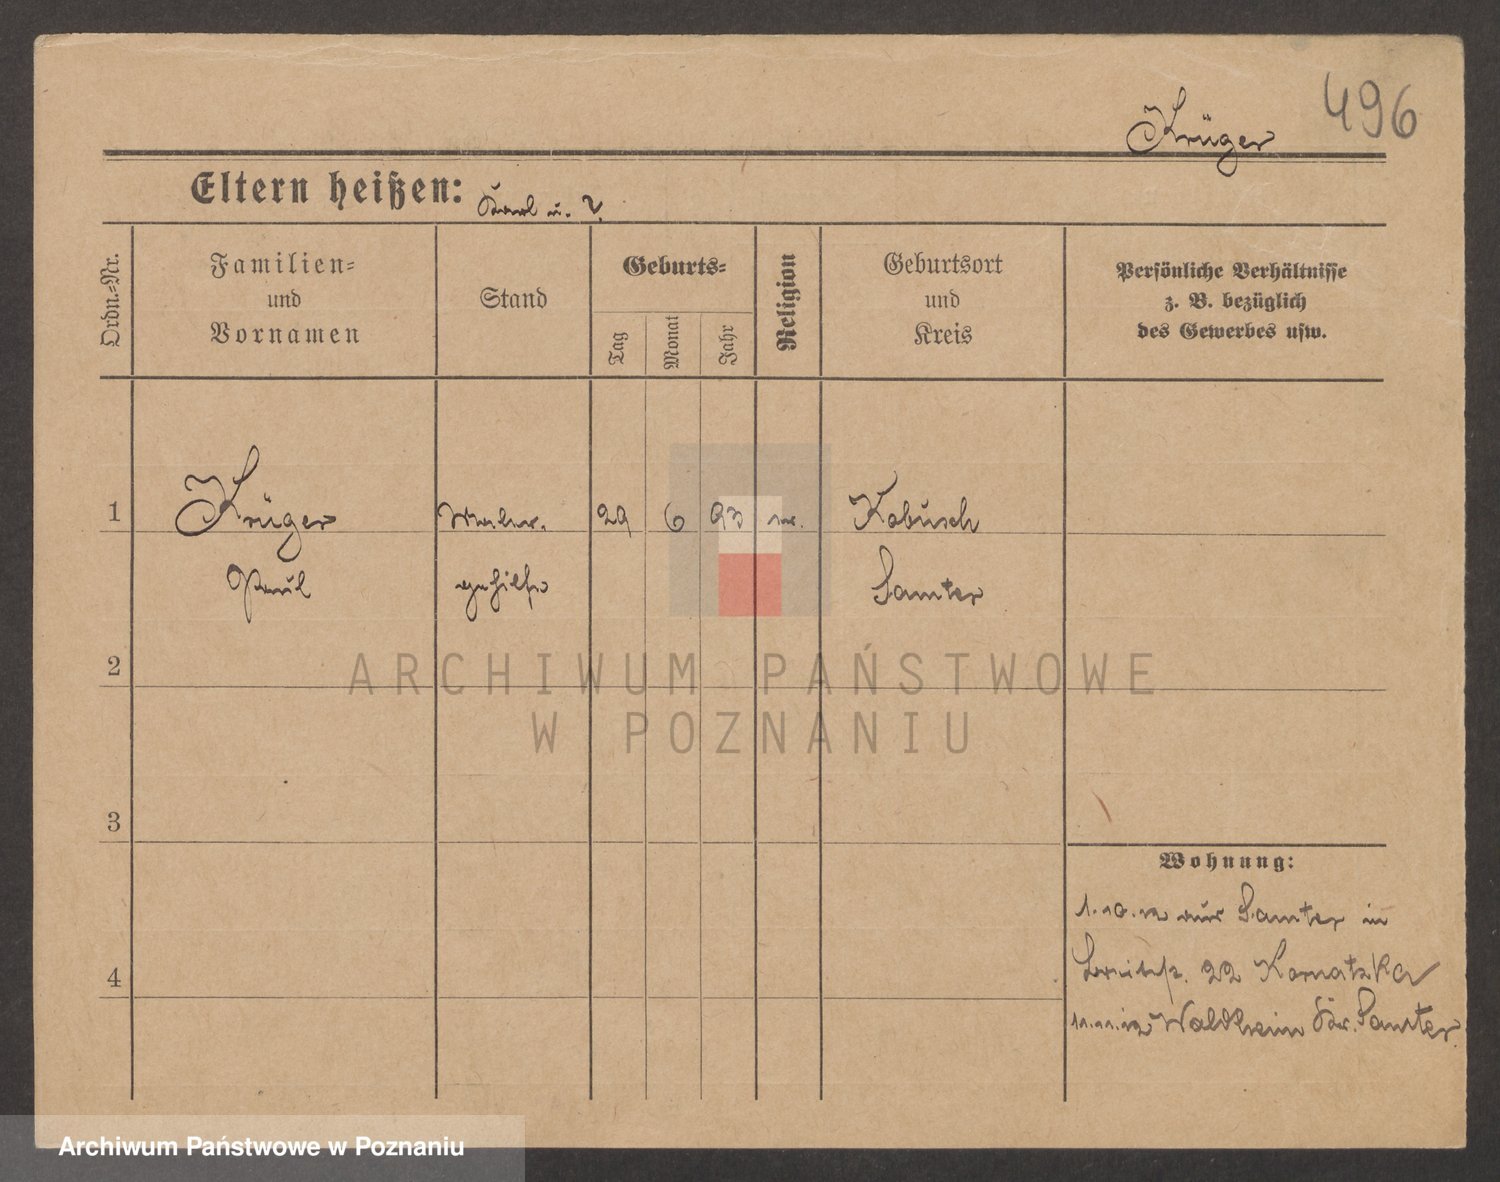 496
Krüger
Eltern heißen: Karl u. ?
Ordn.-Nr.
Familien-
und
Vornamen
Stand
Geburts-
Tag
Monat
Jahr
Religion
Geburtsort
und
Kreis
Persönliche Verhältnisse
z. B. bezüglich
des Gewerbes usw.
1 Krüger 29 6 93 Kobusch
Paul gehilfe Samter
2
3
4
Wohnung:
1.10.12 aus Samter in
22 Kornatzka
11.11.12 Waldheim Kr. Samter
ARCHIWUM PAŃSTWOWE
W POZNANIU
Archiwum Państwowe w Poznaniu